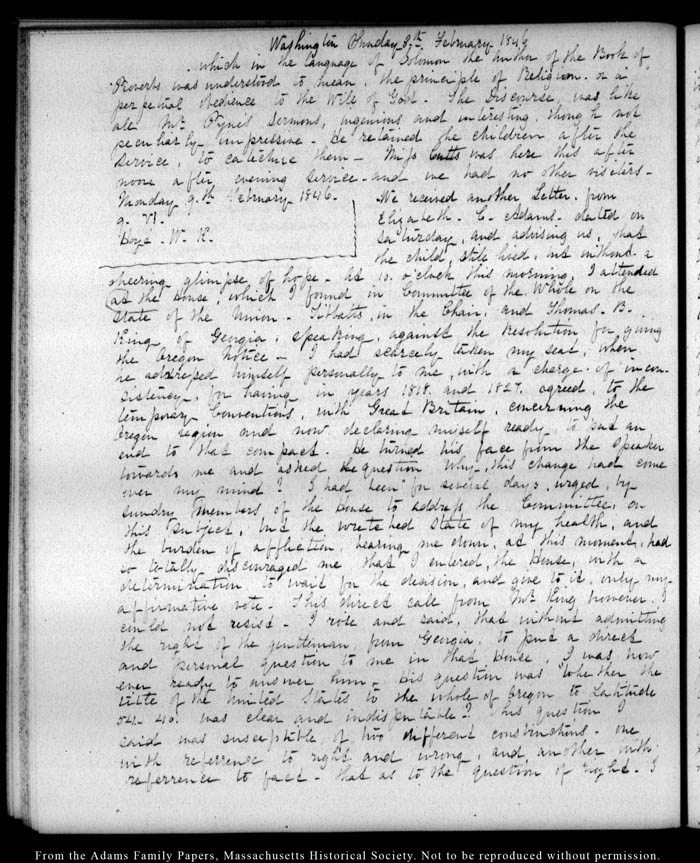 Washington Sunday 8th. February 1846
which in the language of Solomon the author of the Book of
Proverbs was understood to mean, the principle of Religion. or a
perpetual obedience to the Will of God. The Discourse, was like
all Mr Pyne's Sermons, ingenious and interesting, though not
peculiarly impressive. He retained the children after the
service, to catechise them — Miss Cutts was here this after
noon after evening service. and we had no other visiters.
Monday 9th. February 1846.
9. VI.
Boyd. W. R.
We received another Letter, from
Elizabeth. C. Adams. dated on
Saturday, and advising us, that
the child, still lived, but without a
cheering glimpse of hope. At 10. o'clock this morning, I attended
at the House, which I found in Committee of the Whole on the
State of the Union. Tibbatts, in the Chair, and Thomas. B.
King of Georgia, speaking, against the Resolution for giving
the Oregon Notice — I had scarcely taken my seat, when
he addressed himself personally to me, with a charge. of incon-
sistency, for having in years 1818. and 1827. agreed, to the
temporary Conventions, with Great Britain, concerning the
Oregon region and now declaring myself ready, to put an
end to that compact. He turned his face from the Speaker
towards me and asked the question Why, this change had come
over my mind? I had been for several days, urged, by
sundry members of the House to address the Committee, on
this subject, but the wretched state of my health, and
the burden of affliction, bearing me down, at this moment, had
so totally discouraged me that I entered, the House, with a
determination to wait for the decision, and give to it, only my
affirmative vote. This direct call from Mr King however, I
could not resist — I rose and said, that without admitting
the right of the gentleman, from Georgia, to put a direct
and personal question to me in that House, I was how
ever ready to answer him — His question was Whether the
title of the United States to the whole of Oregon to Latitude
54. 40. was clear and indisputable? This question I
said was susceptible, of two different constructions. one
with referrence to right and wrong, and another with
referrence to fact — that as to the question of right. I
From the Adams Family Papers, Massachusetts Historical Society. Not to be reproduced without permission.